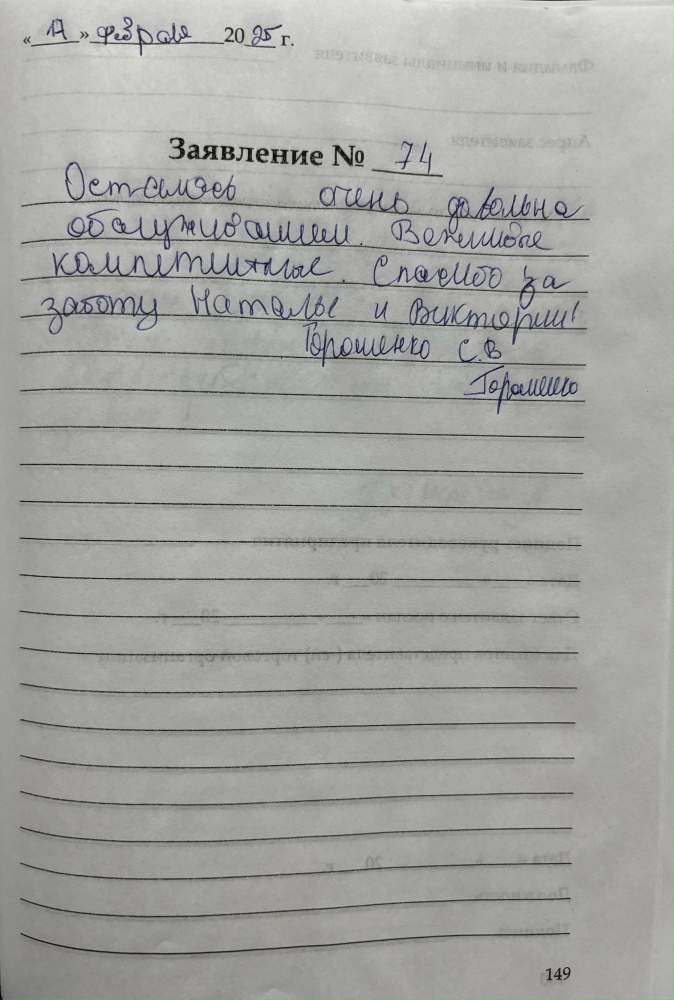 «17» февраля 2025 г.
Заявление № 74
Осталась очень довольна
обслуживанием. Вежливые
компетитные. Спасибо за
заботу Наталье и Виктории!
Торошенко С.В
Торошенко
149